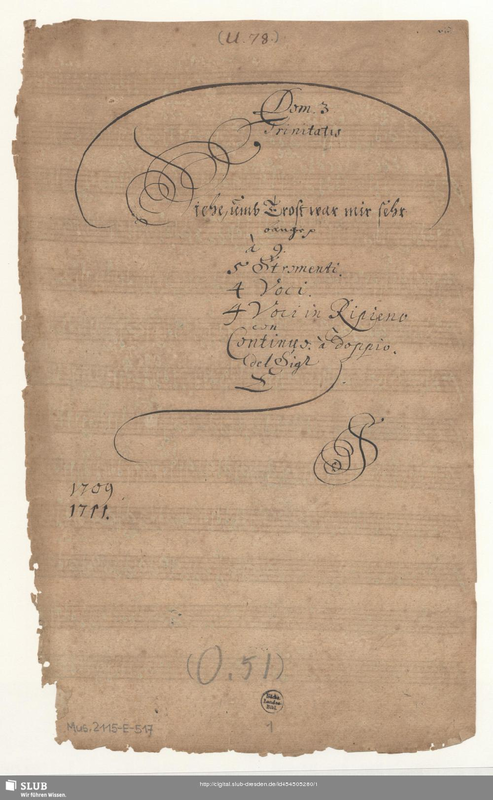 (U. 78.)
Dom. 3
Trinitatis
Siehe, umb Trost war mir sehr
bange
à 9.
5 Stromenti.
4 Voci.
4 Voci in Ripieno
con
Continuo. à doppio.
del Sigr
1709
1711.
(O. 51)
Mus. 2115-E-517
1
SLUB
Wir führen Wissen.
http://digital.slub-dresden.de/id454505260/1